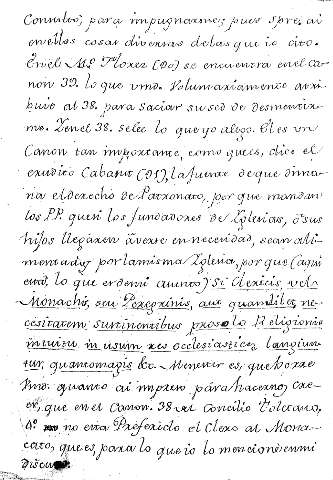 Consulto, para impugnarme; pues spre. ai
en ellos cosas diversas de las que io cito.
En el M.e Florez (90) se encuentra en el Ca-
non 39. lo que vmd. Voluntariamente atri-
buio al 38. para saciar su sed de desmentir-
me. I en el 38. se lee lo que yo alego. El es un
Canon tan importante, como que es, dice el
erudito Cabasut (91), la fuente de que dima-
na el derecho de Patronato, por que mandan
los PP. que si los fundadores de Iglesias, ó sus
hijos llegaren á verse en necesidad, sean ali-
mentados por la misma Iglesia, por que (
lo que er de mi asunto) Si Clericis, vel
Monachis, seu Peregrinis, aut quamlibet ne-
cesitatem sustinentibus pro solo Religionis
intuitu in usum res ecclesiasticæ largiun-
tur, quantomagis &c. Menester es, que
Vmd. quanto ai impreso para hacernos cre-
er, que en el Canon. 38. del Concilio Toletano,
4.º no esta Preferido el Clero al Mona-
cato, que es, para lo que io lo mencioné en mi
discurso.